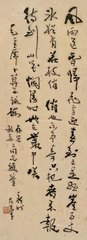 風雨送春歸飛雪迎春到已是懸崖百丈
冰猶有花枝俏俏也不爭春只把春來報
待到山花爛漫時她在叢中笑
毛主席卜算子詠梅